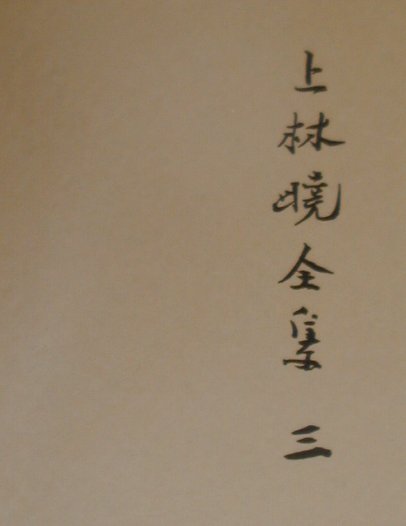 上林曉全集 三